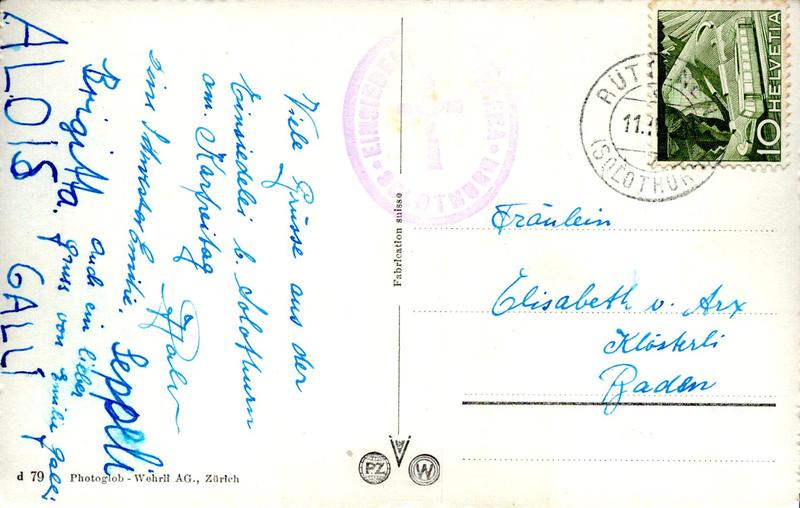 Viele Grüsse aus der
Einsiedelei b. Solothurn
am Karfreitag
Deine Schwester Emilie.
Seppli
Brigitta.
auch ein lieber
Gruss von Emilie Galli
ALOIS GALLI
d 79 Photoglob - Wehrli AG., Zürich
Fabrication suisse
PZ
W
EINSIEDELEI
SOLOTHURN
RÜT
11.
(SOLOTHUR
HELVETIA
10
Fräulein
Elisabeth v. Arx
Klösterli
Baden